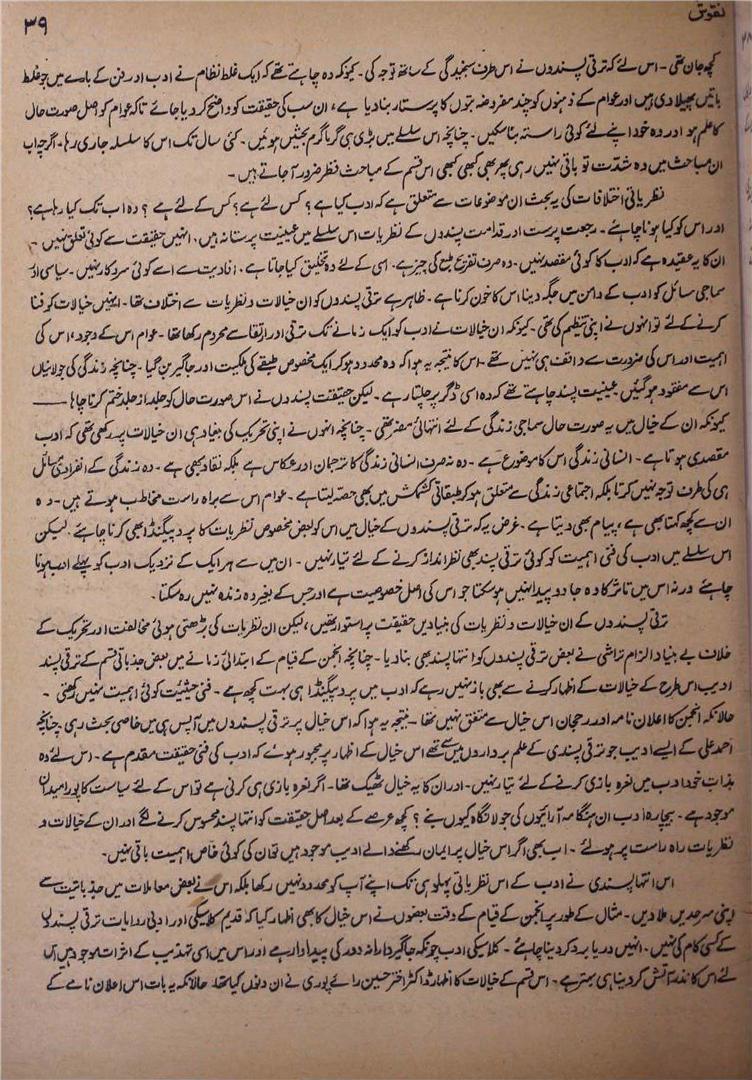 نقوش
۳۹
کچھ جان تھی - اس لئے کہ ترقی پسندوں نے اس طرف سنجیدگی کے ساتھ توجہ کی - کیونکہ وہ چاہتے تھے کہ ایک غلط نظام نے ادب اور فن کے بارے میں جو غلط
باتیں پھیلا دی ہیں اور عوام کے ذہنوں کو چند مفروضہ بتوں کا پرستار بنا دیا ہے، ان سب کی حقیقت کو واضح کر دیا جائے تاکہ عوام کو اصل صورت حال
کا علم ہو اور وہ خود اپنے لئے کوئی راستہ بنا سکیں - چنانچہ اس سلسلے میں بڑی ہی گرما گرم بحثیں ہوئیں - کئی سال تک اس کا سلسلہ جاری رہا - اگرچہ اب
ان مباحث میں وہ شدت تو باقی نہیں رہی پھر بھی کبھی کبھی اس قسم کے مباحث نظر ضرور آ جاتے ہیں -
نظریاتی اختلافات کی یہ بحث ان موضوعات سے متعلق ہے کہ ادب کیا ہے ؟ کس لئے ہے ؟ کس کے لئے ہے ؟ وہ اب تک کیا رہا ہے ؟
اور اس کو کیا ہونا چاہئے - رجعت پرست اور قدامت پسندوں کے نظریات اس سلسلے میں عینیت پرستانہ ہیں، انہیں حقیقت سے کوئی تعلق نہیں -
ان کا یہ عقیدہ ہے کہ ادب کا کوئی مقصد نہیں - وہ صرف تفریح طبع کی چیز ہے - اسی کے لئے وہ تخلیق کیا جاتا ہے، افادیت سے اسے کوئی سروکار نہیں - سیاسی اور
سماجی مسائل کو ادب کے دامن میں جگہ دینا اس کا خون کرنا ہے - ظاہر ہے ترقی پسندوں کو ان خیالات و نظریات سے اختلاف تھا - انہیں خیالات کو فنا
کرنے کے لئے تو انہوں نے اپنی تنظیم کی تھی - کیونکہ ان خیالات نے ادب کو ایک زمانے تک ترقی اور ارتقا سے محروم رکھا تھا - عوام اس کے وجود، اس کی
اہمیت اور اس کی ضرورت سے واقف ہی نہیں تھے - اس کا نتیجہ یہ ہوا کہ وہ محدود ہو کر ایک مخصوص طبقے کی ملکیت اور جاگیر بن گیا - چنانچہ زندگی کی جولانیاں
اس سے مفقود ہو گئیں عینیت پسند چاہتے تھے کہ وہ اسی ڈگر پر چلتا رہے - لیکن حقیقت پسندوں نے اس صورت حال کو جلد از جلد ختم کرنا چاہا ——
کیونکہ ان کے خیال میں یہ صورت حال سماجی زندگی کے لئے انتہائی مضر تھی - چنانچہ انہوں نے اپنی تحریک کی بنیاد ہی ان خیالات پر رکھی تھی کہ ادب
مقصدی ہوتا ہے - انسانی زندگی اس کا موضوع ہے - وہ نہ صرف انسانی زندگی کا ترجمان اور عکاس ہے بلکہ نقاد بھی ہے - وہ زندگی کے انفرادی مسائل
ہی کی طرف توجہ نہیں کرتا بلکہ اجتماعی زندگی سے متعلق ہو کر طبقاتی کشمکش میں بھی حصہ لیتا ہے - عوام اس سے براہ راست مخاطب ہوتے ہیں - وہ
ان سے کچھ کہتا بھی ہے، پیام بھی دیتا ہے - غرض یہ کہ ترقی پسندوں کے خیال میں اس کو بعض مخصوص نظریات کا پروپیگنڈا بھی کرنا چاہئے - لیکن
اس سلسلے میں ادب کی فنی اہمیت کو کوئی ترقی پسند بھی نظر انداز کرنے کے لئے تیار نہیں - ان میں سے ہر ایک کے نزدیک ادب کو پہلے ادب ہونا
چاہئے ورنہ اس میں تاثر کا وہ جادو پیدا نہیں ہو سکتا جو اس کی اصل خصوصیت ہے اور جس کے بغیر وہ زندہ نہیں رہ سکتا -
ترقی پسندوں کے ان خیالات و نظریات کی بنیادیں حقیقت پر استوار تھیں، لیکن ان نظریات کی بڑھتی ہوئی مخالفت اور تحریک کے
خلاف بے بنیاد الزام تراشی نے بعض ترقی پسندوں کو انتہا پسند بھی بنا دیا - چنانچہ انجمن کے قیام کے ابتدائی زمانے میں بعض جذباتی قسم کے ترقی پسند
ادیب اس طرح کے خیالات کے اظہار کرنے سے بھی باز نہیں رہے کہ ادب میں پروپیگنڈا ہی بہت کچھ ہے - فنی حیثیت کوئی اہمیت نہیں رکھتی -
حالانکہ انجمن کا اعلان نامہ اور رجحان اس خیال سے متفق نہیں تھا - نتیجہ یہ ہوا کہ اس خیال پر ترقی پسندوں میں آپس ہی میں خاصی بحث رہی - چنانچہ
احمد علی کے ایسے ادیب جو ترقی پسندی کے علم برداروں میں سے تھے اس خیال کے اظہار پر مجبور ہوئے کہ ادب کی فنی حقیقت مقدم ہے - اس لئے وہ
بذات خود ادب میں نعرہ بازی کرنے کے لئے تیار نہیں - اور ان کا یہ خیال ٹھیک تھا - اگر نعرہ بازی ہی کرنی ہے تو اس کے لئے سیاست کا پورا میدان
موجود ہے - بیچارہ ادب ان ہنگامہ آرائیوں کی جولانگاہ کیوں بنے ؟ کچھ عرصے کے بعد اصل حقیقت کو انتہا پسند محسوس کرنے لگے اور ان کے خیالات و
نظریات راہ راست پر ہو لئے - اب بھی اگر اس خیال پر ایمان رکھنے والے ادیب موجود ہیں تو ان کی کوئی خاص اہمیت باقی نہیں -
اس انتہا پسندی نے ادب کے اس نظریاتی پہلو ہی تک اپنے آپ کو محدود نہیں رکھا بلکہ اس نے بعض معاملات میں جذباتیت سے
اپنی سرحدیں ملا دیں - مثال کے طور پر انجمن کے قیام کے وقت بعضوں نے اس خیال کا بھی اظہار کیا کہ قدیم کلاسیکی اور ادبی روایات ترقی پسندوں
کے کسی کام کی نہیں - انہیں دریا برد کر دینا چاہئے - کلاسیکی ادب چونکہ جاگیردارانہ دور کی پیداوار ہے اور اس میں اسی تہذیب کے اثرات موجود ہیں اس
لئے اس کا نذر آتش کر دینا ہی بہتر ہے - اس قسم کے خیالات کا اظہار ڈاکٹر اختر حسین رائے پوری نے ان دنوں کیا تھا - حالانکہ یہ بات اس اعلان نامے کے